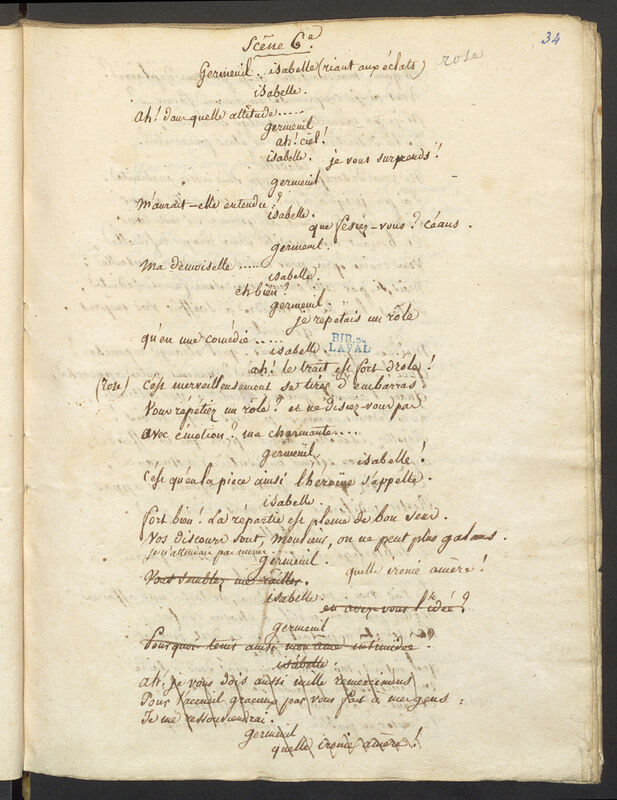 34
Scène 6e.
rose
Germeuil. isabelle (riant aux éclats)
isabelle.
Ah! dans quelle attitude......
germeuil
ah! ciel!
isabelle. je vous surprends!
germeuil
M'aurait-elle entendu?
isabelle.
que fesiez-vous? céans.
germeuil.
Ma demoiselle .....
isabelle.
eh bien?
germeuil.
je répétais un rôle
qu'en une comédie......
isabelle.
BIB. DE
LAVAL
ah! le trait est fort drôle!
(rose) c'est merveilleusement se tirer d'embarras
Vous répétiez un rôle? et ne disiez-vous pas
avec émotion? ma charmante....
germeuil. isabelle!
C'est qu'en la pièce ainsi l'héroïne s'appelle.
isabelle.
fort bien! La répartie est pleine de bon sens.
Vos discours sont, monsieur, on ne peut plus galans.
je n'attendais pas moins
germeuil.
quelle ironie amère!
Vous semblez me railler.
isabelle.
en avez-vous l'idée?
germeuil
Pourquoi tenir ainsi mon âme intimidée?
isabelle
ah! je vous dois aussi mille remercimens
Pour l'accueil gracieux par vous fait à mes gens:
Je me ressouviendrai.
germeuil
quelle ironie amère!